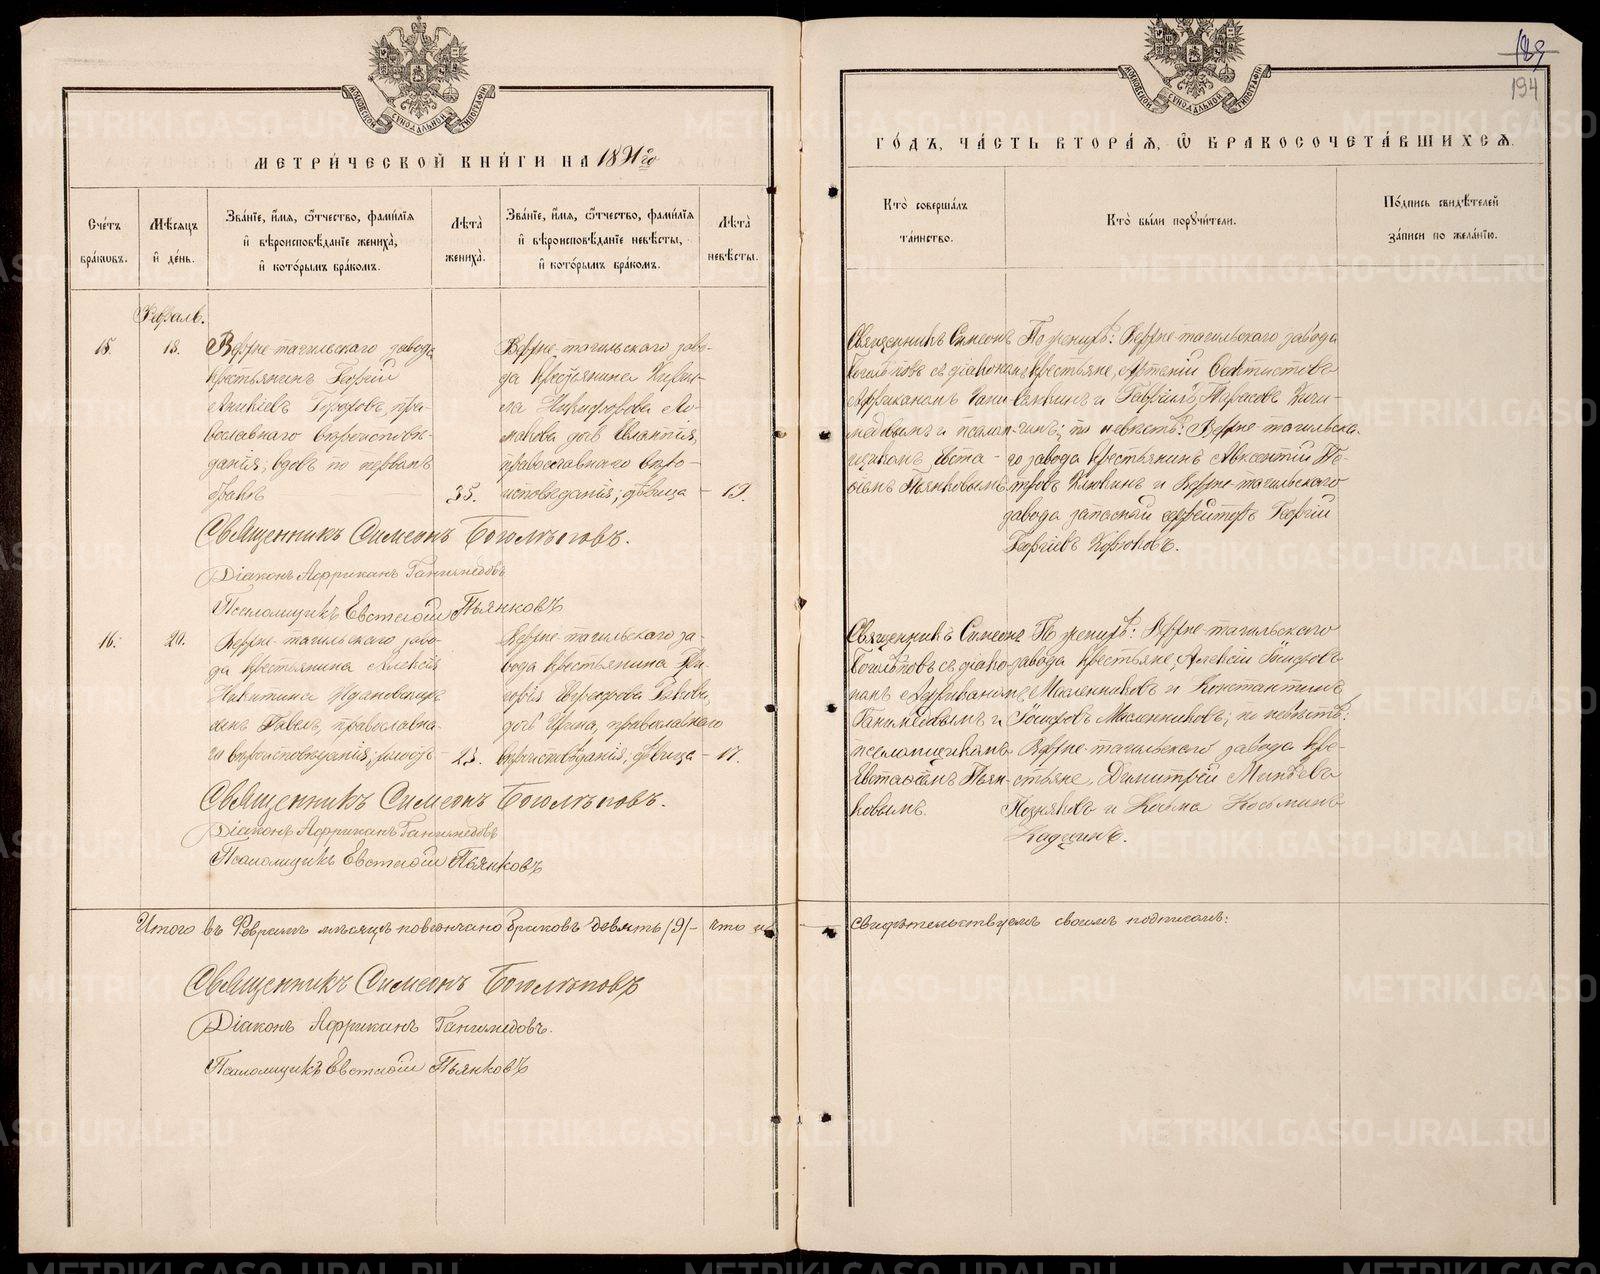 МОСКОВСКОЙ СѴНОДАЛЬНОЙ ТИПОГРАФІИ
МЕТРИ́ЧЕСКОЙ КНИ́ГИ НА 1891го
Сче́тъ бра́ковъ.
Мѣ́сяцъ и҆ де́нь.
Зва́нїе, и҆́мя, ѻ҆́тчество, фами́лїя и҆ вѣроисповѣ́данїе жениха̀, и҆ кото́рымъ бра́комъ.
Лѣта̀ жениха̀.
Зва́нїе, и҆́мя, ѻ҆́тчество, фами́лїя и҆ вѣроисповѣ́данїе невѣ́сты, и҆ кото́рымъ бра́комъ.
Лѣта̀ невѣ́сты.
Февраль.
15.
18.
Верхне-тагильскаго завода
крестьянинъ Георгій
Аникіевъ пра-
вославнаго вѣроисповѣ-
данія; вдовъ по первомъ
бракѣ
35.
Верхне-тагильскаго заво-
да крестьянина Кирил-
ла Никифорова Ло-
манова дочь
православнаго вѣро-
исповѣданія; дѣвица
19.
Священникъ Симеонъ Боголѣповъ.
Діаконъ Африканъ Ганимедовъ
Псаломщикъ Евстафій Пьянковъ
16.
20.
Верхне-тагильскаго заво-
да крестьянина Алексія
Никитина
сынъ Павелъ, православна-
го вѣроисповѣданія; холостъ
23.
Верхне-тагильскаго за-
вода крестьянина Гри-
горія
дочь Ирина, православнаго
вѣроисповѣданія, дѣвица
17.
Священникъ Симеонъ Боголѣповъ.
Діаконъ Африканъ Ганимедовъ
Псаломщикъ Евстафій Пьянковъ
Итого въ Февралѣ мѣсяцѣ повѣнчано браковъ девять (9) – что и
Священникъ Симеонъ Боголѣповъ
Діаконъ Африканъ Ганимедовъ.
Псаломщикъ Евстафій Пьянковъ
189
194
МОСКОВСКОЙ СѴНОДАЛЬНОЙ ТИПОГРАФІИ
ГО́ДЪ, ЧА́СТЬ ВТОРА́Я, Ѽ БРАКОСОЧЕТА́ВШИХСЯ.
Кто̀ соверша́лъ та́инство.
Кто̀ бы́ли поручи́тели.
По́дпись свидѣ́телей за́писи по жела́нїю.
Священникъ Симеонъ
Боголѣповъ съ діакономъ
Африканомъ Гани-
медовымъ и псалом-
щикомъ Евста-
фіемъ Пьянковымъ
По женихѣ: Верхне-тагильскаго завода
крестьяне, Артемій
и Гавріилъ Тарасовъ Кичи-
гинъ; по невѣстѣ: Верхне тагильска-
го завода крестьянинъ Авксентій Пе-
тровъ и Верхне-тагильскаго
завода запасный ефрейторъ Георгій
Георгіевъ
Священникъ Симеонъ
Боголѣповъ съ діако-
номъ Африканомъ
Ганимедовымъ и
псаломщикомъ
Евстафіемъ Пьян-
ковымъ.
По женихѣ: Верхне-тагильскаго
завода крестьяне, Алексій
Масленниковъ и Константинъ
Масленниковъ; по невѣстѣ:
Верхне-тагильскаго завода кре-
стьяне, Димитрій
Поздняковъ и Козьма Козьминъ
свидѣтельствуемъ своимъ подписомъ:
METRIKI.GASO-URAL.RU